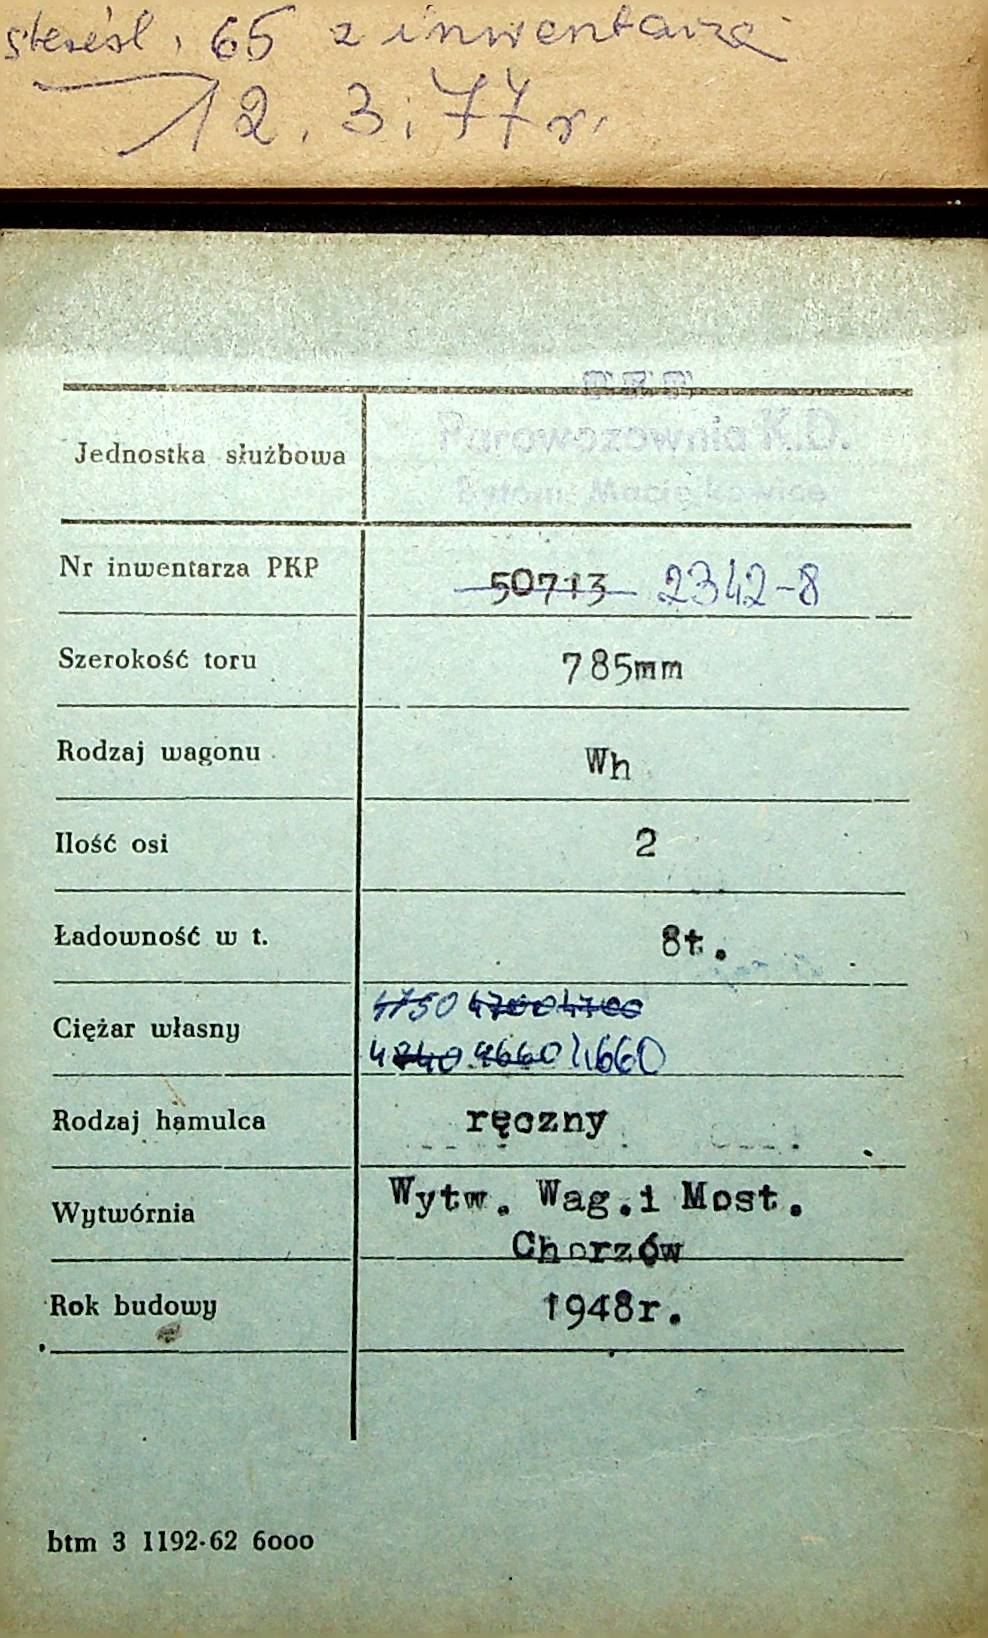 skreśl. 65 z inwentarza
12.3.77r.
P.K.P.
Parowozownia K.D.
Bytom Maciejkowice
Jednostka służbowa
Nr inwentarza PKP 50713 2342-8
Szerokość toru 785mm
Rodzaj wagonu Wh
Ilość osi 2
Ładowność w t. 8t.
Ciężar własny 4750 4700 4700
4840 4660 4660
Rodzaj hamulca ręczny
Wytwórnia Wytw. Wag.i Most.
Chorzów
Rok budowy 1948r.
btm 3 1192-62 6ooo